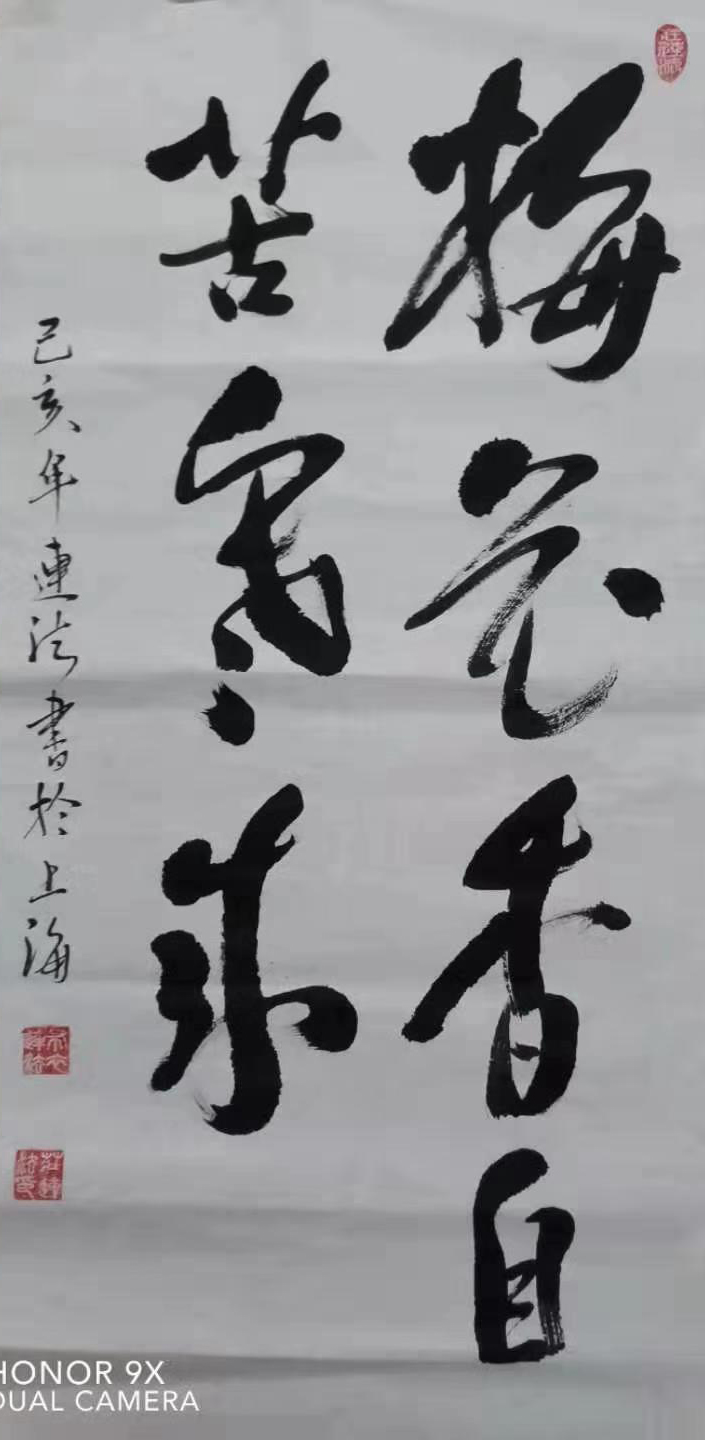 梅花香自
苦寒来
己亥年連法書於上海
HONOR 9X
DUAL CAMERA